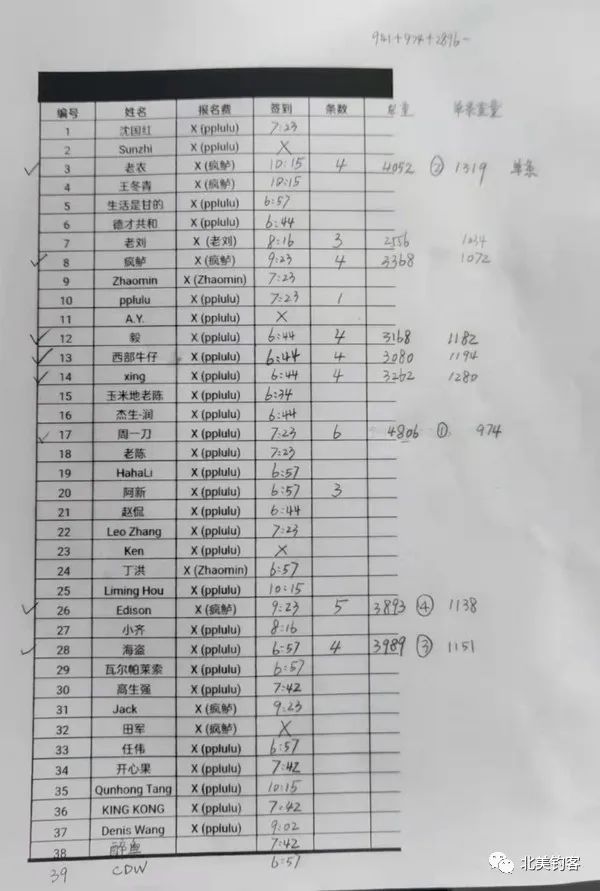 941+974+2896-
编号 姓名 报名费 签到 条数 总重 单条重量
1 沈国红 X (pplulu) 7:23
2 Sunzhi X (pplulu) X
✓ 3 老农 X (疯鲈) 10:15 4 4052 ② 1319 单条
4 王冬青 X (疯鲈) 10:15
5 生活是甘的 X (pplulu) 6:57
6 德才共和 X (pplulu) 6:44
7 老刘 X (老刘) 8:16 3 2556 1234
✓ 8 疯鲈 X (疯鲈) 9:23 4 3368 1072
9 Zhaomin X (Zhaomin) 7:23
10 pplulu X (pplulu) 7:23 1
11 A.Y. X (pplulu) X
✓ 12 毅 X (pplulu) 6:44 4 3168 1182
✓ 13 西部牛仔 X (pplulu) 6:44 4 3080 1194
✓ 14 xing X (pplulu) 6:44 4 3262 1280
15 玉米地老陈 X (pplulu) 6:34
16 杰生-润 X (pplulu) 6:44
✓ 17 周一刀 X (pplulu) 7:23 6 4806 ① 974
18 老陈 X (pplulu) 7:23
19 HahaLi X (pplulu) 6:57
20 阿新 X (pplulu) 6:57 3
21 赵侃 X (pplulu) 6:44
22 Leo Zhang X (pplulu) 7:23
23 Ken X (pplulu) X
24 丁洪 X (Zhaomin) 6:57
25 Liming Hou X (pplulu) 10:15
✓ 26 Edison X (疯鲈) 9:23 5 3893 ④ 1138
27 小齐 X (pplulu) 8:16
✓ 28 海盗 X (pplulu) 6:57 4 3989 ③ 1151
29 瓦尔帕莱索 X (pplulu) 6:57
30 高生强 X (pplulu) 7:42
31 Jack X (疯鲈) 9:23
32 田军 X (疯鲈) X
33 任伟 X (pplulu) 6:57
34 开心果 X (pplulu) 7:42
35 Qunhong Tang X (pplulu) 10:15
36 KING KONG X (pplulu) 7:42
37 Denis Wang X (pplulu) 9:02
38 7:42
39 CDW 6:57
北美钓客